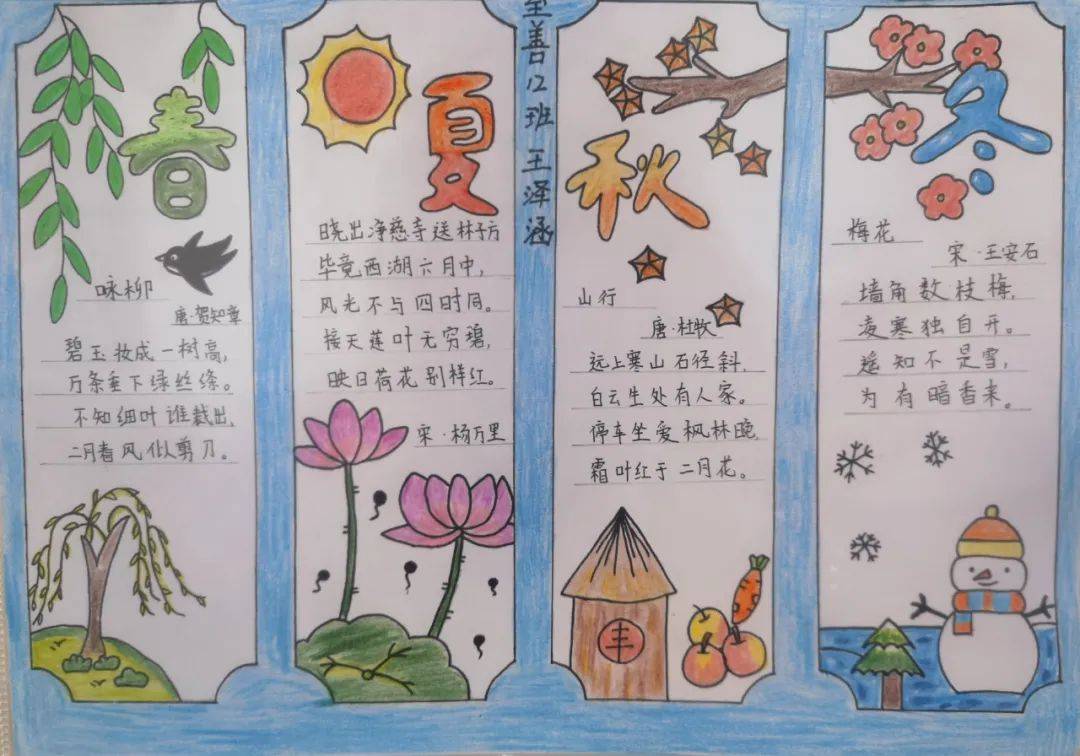 至善12班 王泽涵
春
咏柳
唐·贺知章
碧玉妆成一树高,
万条垂下绿丝绦。
不知细叶谁裁出,
二月春风似剪刀。
夏
晓出净慈寺送林子方
毕竟西湖六月中,
风光不与四时同。
接天莲叶无穷碧,
映日荷花别样红。
宋·杨万里
秋
山行
唐·杜牧
远上寒山石径斜,
白云生处有人家。
停车坐爱枫林晚,
霜叶红于二月花。
丰
冬
梅花
宋·王安石
墙角数枝梅,
凌寒独自开。
遥知不是雪,
为有暗香来。